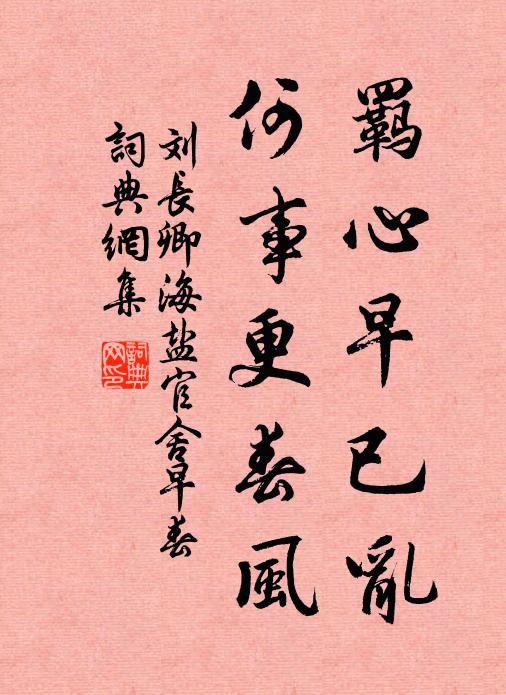 羈心早已亂
何事更春風
刘長卿海盐官舍早春
詞典網集
詞典
网印